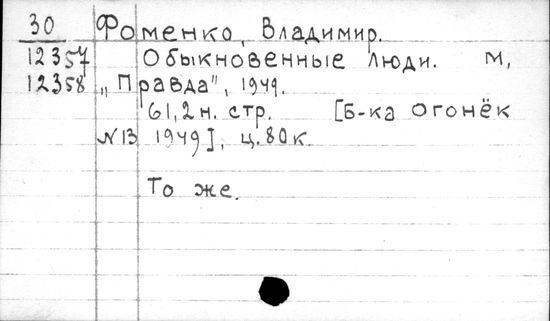 30 Фоменко, Владимир.
12357 Обыкновенные люди. М,
12358 „Правда", 1949.
61,2 н. стр. [Б-ка Огонёк
N13 1949], ц. 80 к.
То же.